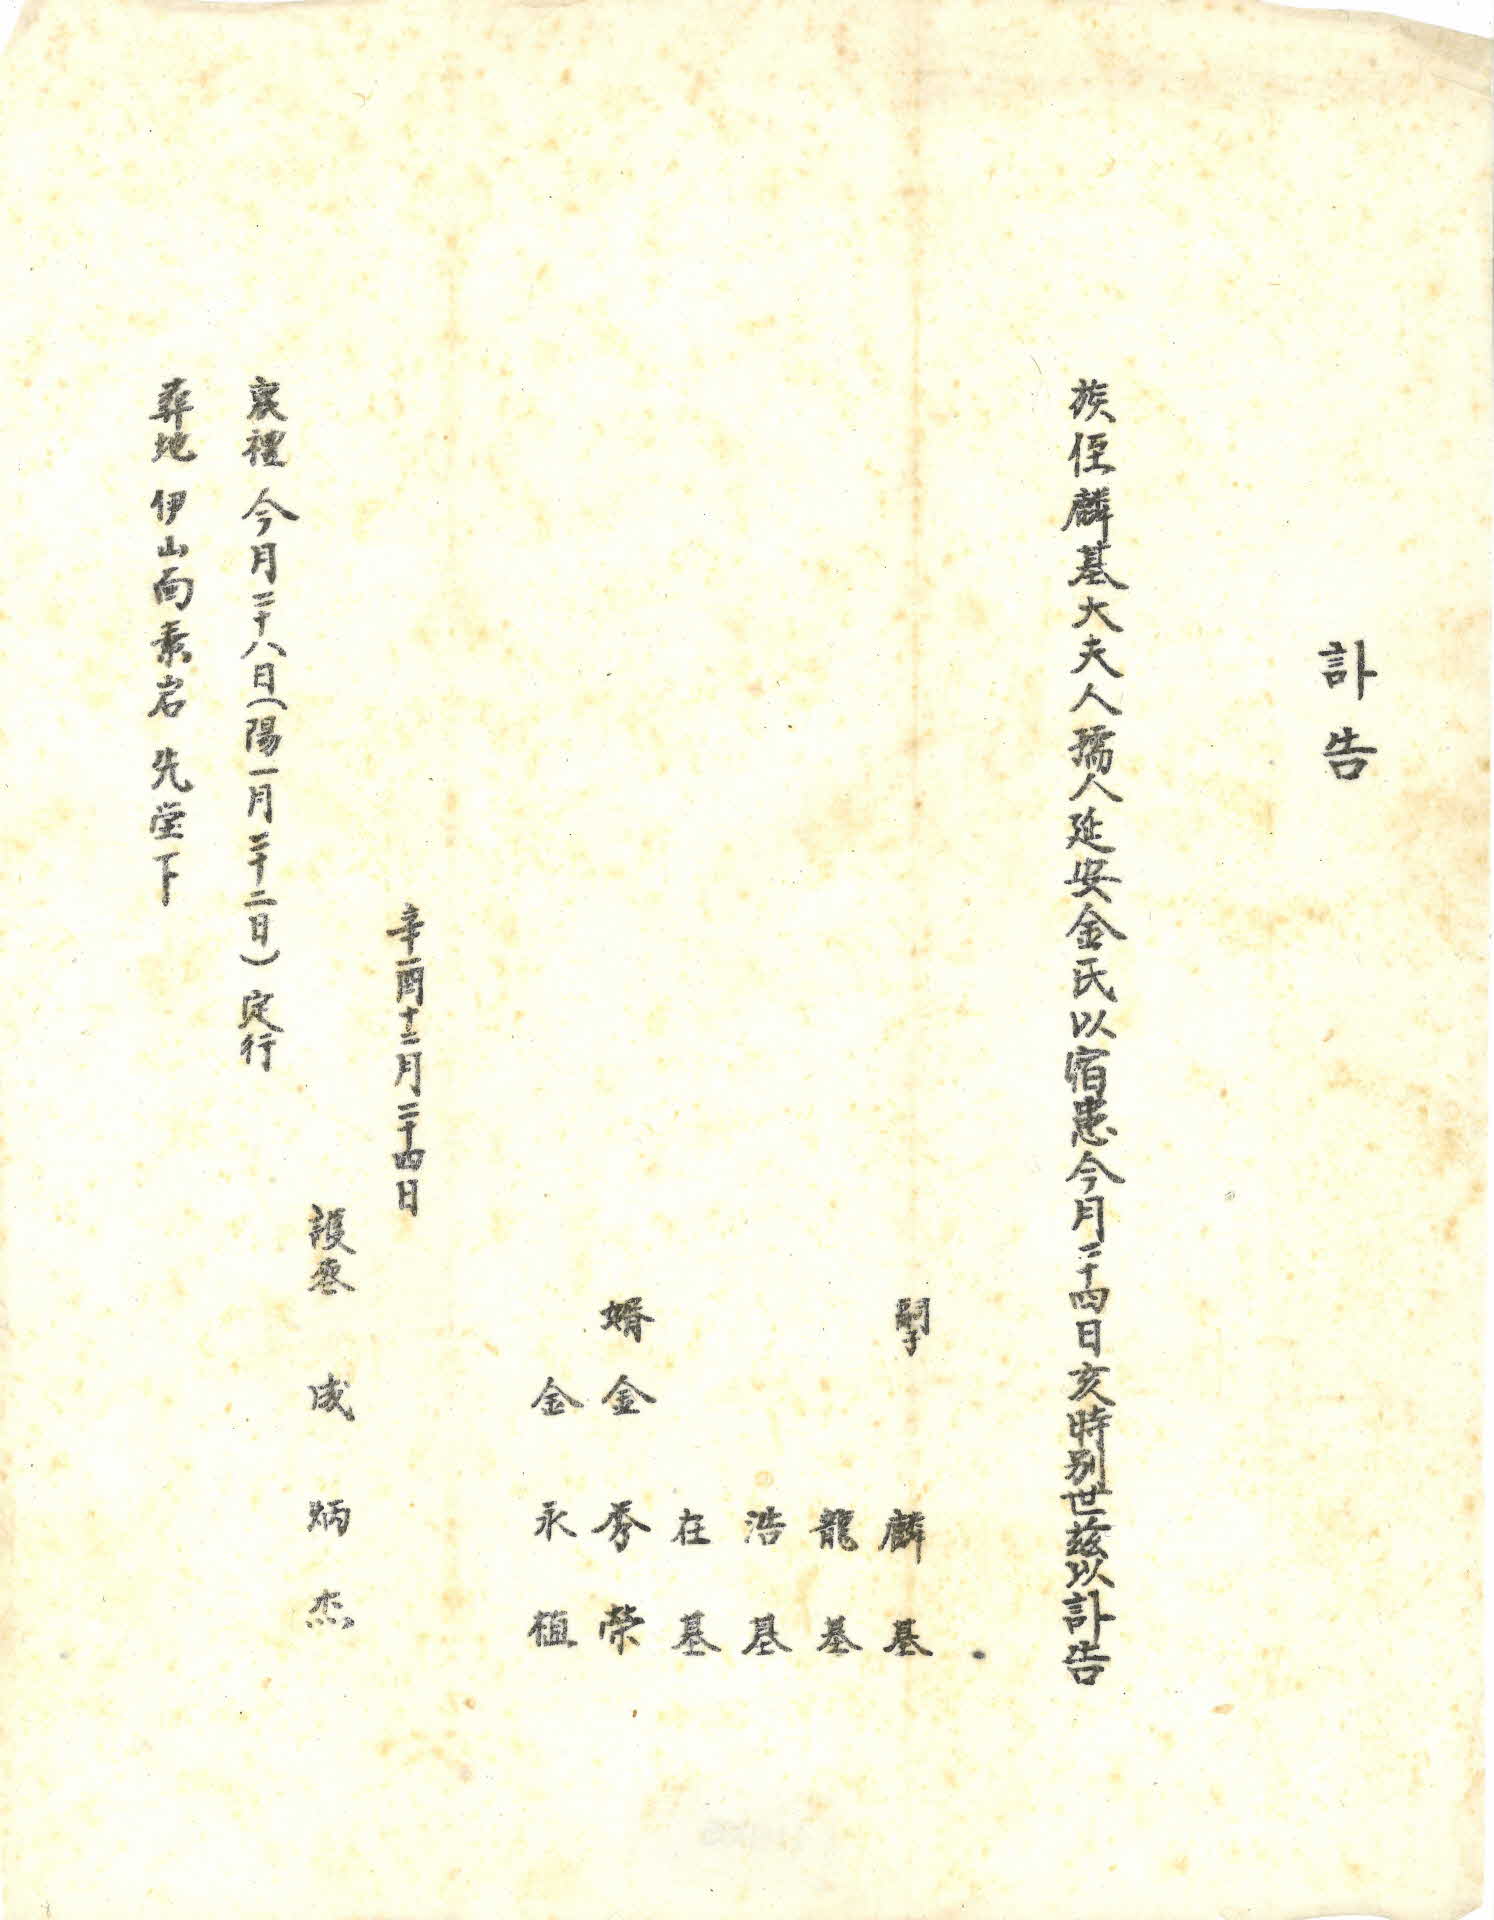 訃告
族侄麟基大夫人孺人延安金氏以宿患今月二十四日亥時別世玆以訃告
嗣子 麟基
龍基
浩基
在基
婿 金秀榮
金永植
辛酉十二月二十四日
護喪 成炳杰
襄禮 今月二十八日(陽一月二十二日)定行
葬地 伊山面 岩 先塋下